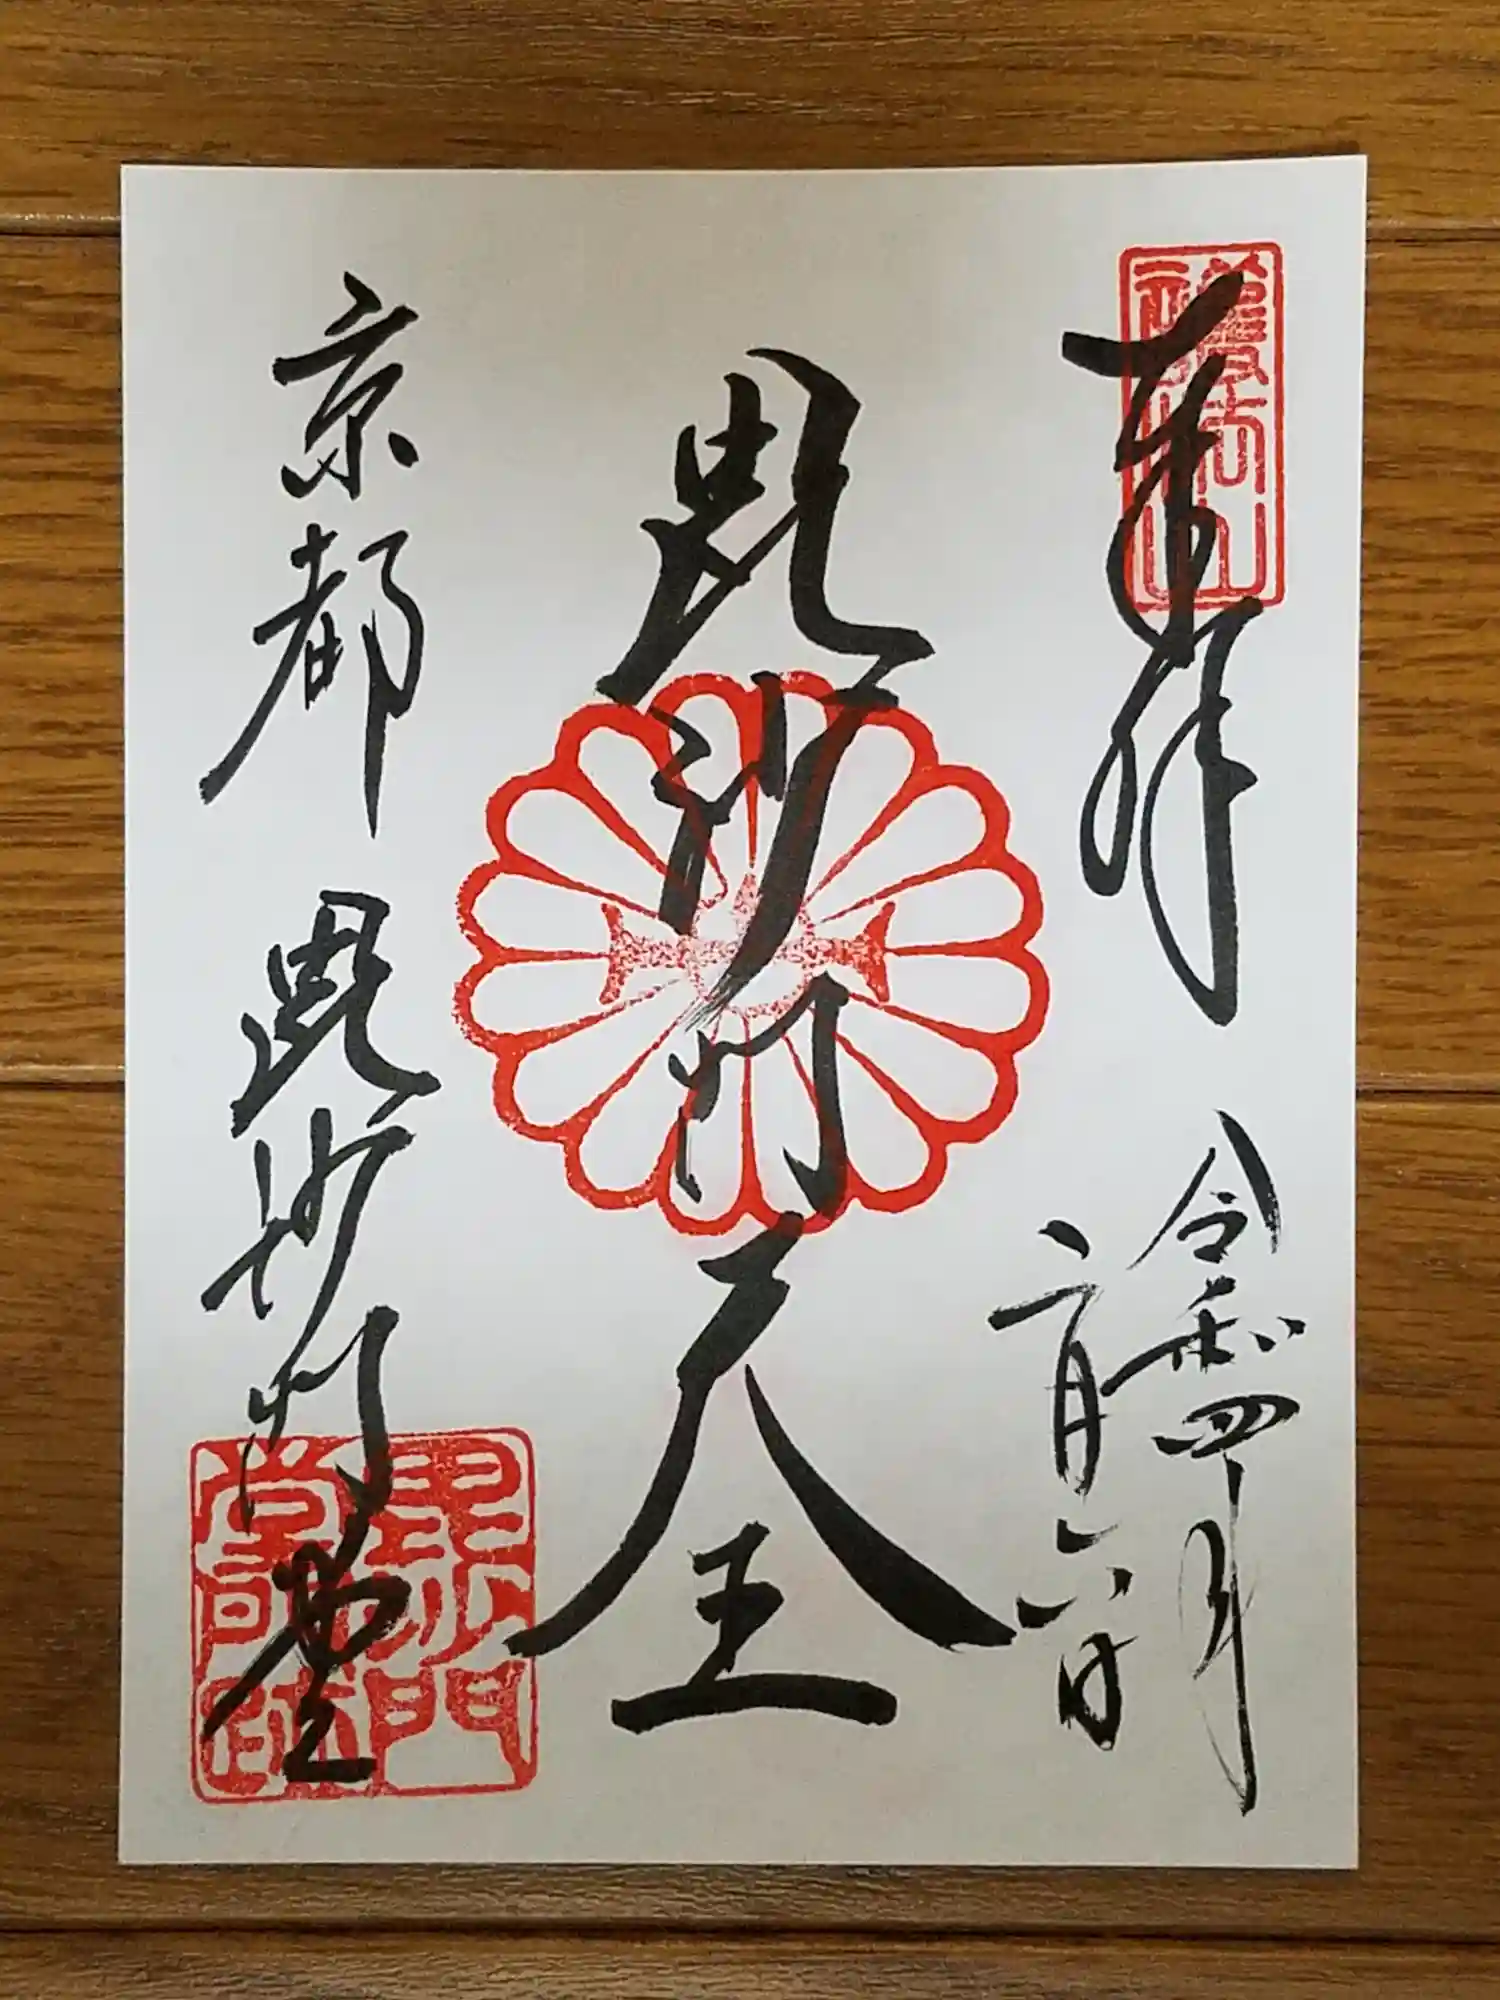 奉拝
令和四年
二月六日
毘沙門天王
京都 毘沙門堂
護法山
毘沙門
堂門跡